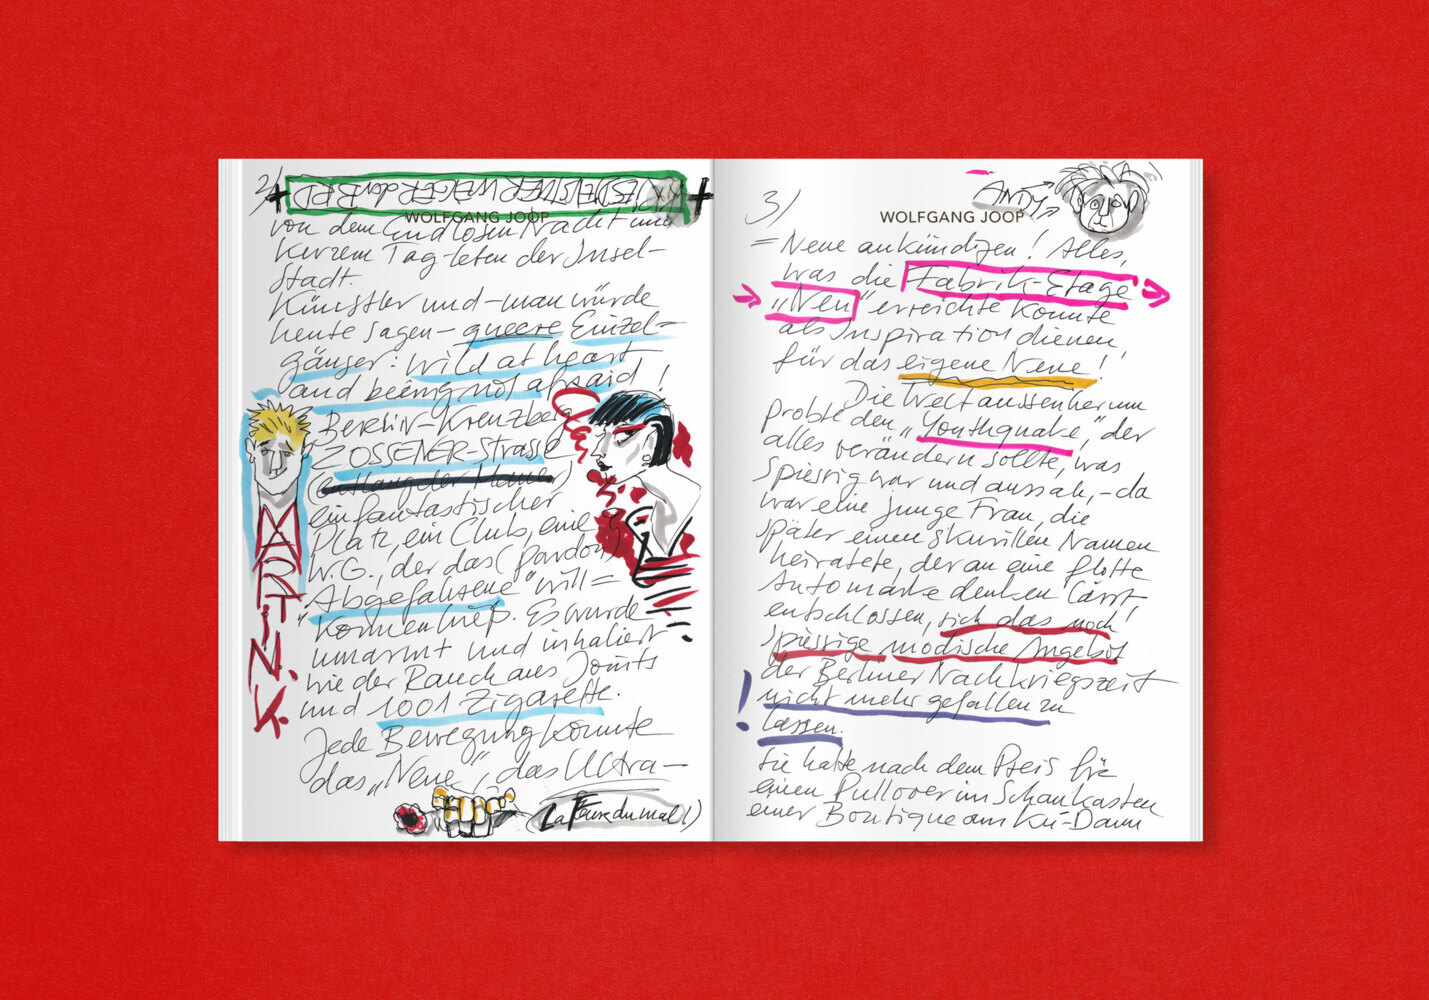 2/
WOLFGANG JOOP
von dem Endlosen Nacht und
kurzem Tag-leben der Insel-
Stadt.
Künstler und – man würde
heute sagen – queere Einzel-
gänger: Wild at heart
and being not afraid!
Berlin-Kreuzberg
ZOSSENER-Strasse
(entlang der Mauer)
ein fantastischer
Platz, ein Club, eine
W.G., der das (pardon)
"Abgefahrene" will=
kommen hieß. Es wurde
umarmt und inhaliert
wie der Rauch aus Joints
und 1001 Zigarette.
Jede Bewegung konnte
das „Neue", das Ultra-
MARTiN.K.
(La Fleur du mal!)
3/
ANDY
WOLFGANG JOOP
= Neue ankündigen! Alles,
was die Fabrik-Etage
„Neu" erreichte konnte
als Inspiration dienen
für das eigene Neue!
Die Welt aussenherum
probte den „Youthquake", der
alles verändern sollte, was
spiessig war und aussah, – da
war eine junge Frau, die
später einen skurillen Namen
heiratete, der an eine flotte
Automarke denken lässt
entschlossen, sich das noch
spiessige modische Angebot
der Berliner Nachkriegszeit
nicht mehr gefallen zu
lassen.
!
Sie hatte nach dem Preis für
einen Pullover im Schaukasten
einer Boutique am Ku-Damm